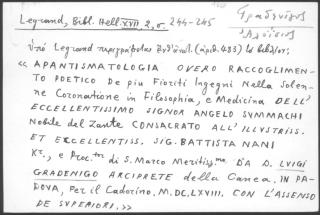 Legrand, Bibl. Hell. XVII 2, σ. 244-245
Γραδενίγος
Ἀλοΐσιος
Ὑπὸ Legrand περιγράφεται (ἀριθ. 483) τὸ βιβλίον:
« APANTISMATOLOGIA OVERO RACCOGLIMEN-
TO POETICO De piu Fioriti Ingegni Nella Solen-
ne Coronatione in Filosophia, e Medicina DELL'
ECCELLENTISSIMO SIGNOR ANGELO SUMMACHI
Nobile del Zante CONSACRATO ALL' ILLUSTRISS.
ET ECCELLENTISS. SIG. BATTISTA NANI
Kr., e Proc.tor di S. Marco Meritiss.mo DA D. LUIGI
GRADENIGO ARCIPRETE della Canea. IN PA-
DOVA, Per il Cadorino. M.DC.LXVIII. CON L'ASSENSO
DE SUPERIORI. »